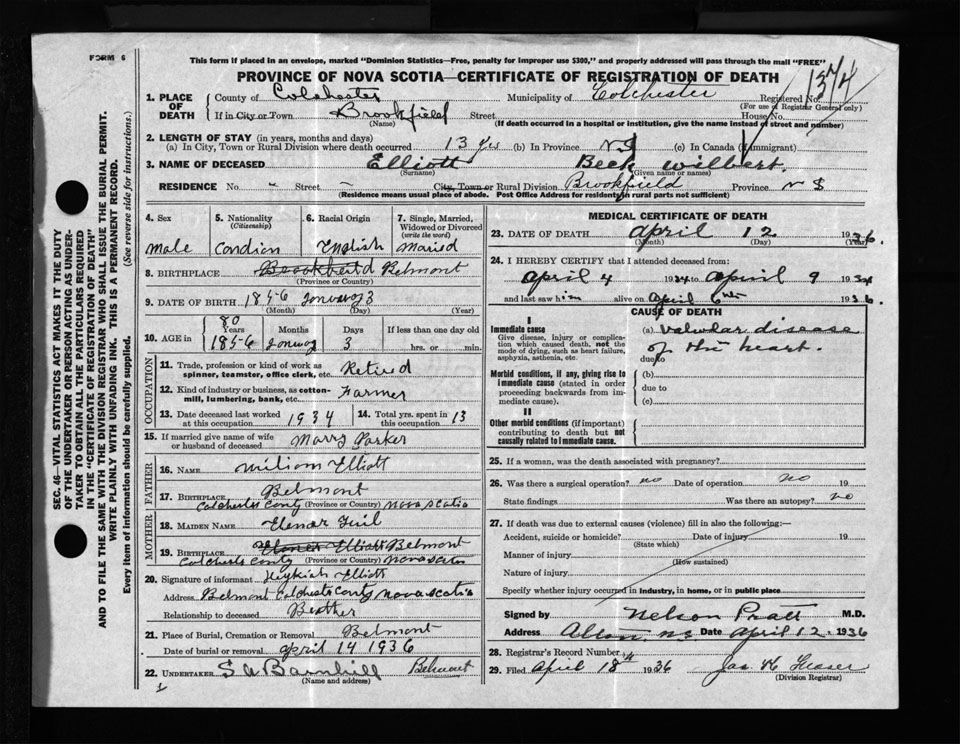 FORM 6
This form if placed in an envelope, marked "Dominion Statistics—Free, penalty for improper use $300," and properly addressed will pass through the mail "FREE"
PROVINCE OF NOVA SCOTIA—CERTIFICATE OF REGISTRATION OF DEATH
1374
1. PLACE OF DEATH County of Colchester Municipality of Colchester Registered No. (For use of Registrar General only)
If in City or Town Brookfield (Name) Street House No.
(If death occurred in a hospital or institution, give the name instead of street and number)
2. LENGTH OF STAY (in years, months and days)
(a) In City, Town or Rural Division where death occurred 13 yrs (b) In Province N S (c) In Canada (if immigrant)
3. NAME OF DECEASED Elliott Beck Wilbert.
(Surname) (Given name or names)
RESIDENCE No. " Street – City, Town or Rural Division Brookfield Province N S
(Residence means usual place of abode. Post Office Address for rural parts not sufficient)
4. Sex 5. Nationality (Citizenship) 6. Racial Origin 7. Single, Married, Widowed or Divorced (write the word)
male Candian English Maried
8. BIRTHPLACE Brookfield Belmont
(Province or Country)
9. DATE OF BIRTH 1856 Janvary 3
(Month) (Day) (Year)
10. AGE in 80 Years Months Days If less than one day old
1856 3 hrs. or min.
OCCUPATION
11. Trade, profession or kind of work as spinner, teamster, office clerk, etc. Retired
12. Kind of industry or business, as cotton-mill, lumbering, bank, etc. Farmer
13. Date deceased last worked at this occupation 1934 14. Total yrs. spent in this occupation 13
15. If married give name of wife or husband of deceased Parker
FATHER
16. NAME Elliott
17. BIRTHPLACE Belmont
Colchests Conty (Province or Country) Nova Scotia
MOTHER
18. MAIDEN NAME
19. BIRTHPLACE Elliott Belmont
Colchests Conty (Province or Country) Nova Scotia
20. Signature of informant Elliott
Address Belmont Colchests Conty Nova Scotia
Relationship to deceased Brother
21. Place of Burial, Cremation or Removal Belmont
Date of burial or removal April 14 1936
22. UNDERTAKER S A Barnhill Belmont
(Name and address)
MEDICAL CERTIFICATE OF DEATH
23. DATE OF DEATH April 12 1936.
(Month) (Day) (Year)
24. I HEREBY CERTIFY that I attended deceased from:
April 4 1934 to April 9 1934
and last saw him alive on April 6th 1936.
CAUSE OF DEATH
I
Immediate cause (a) Valvular disease
Give disease, injury or complication which caused death, not the mode of dying, such as heart failure, asphyxia, asthenia, etc. of the heart.
due to
Morbid conditions, if any, giving rise to immediate cause (stated in order proceeding backwards from immediate cause). (b)
due to
(c)
II
Other morbid conditions (if important) contributing to death but not causally related to immediate cause.
25. If a woman, was the death associated with pregnancy?
26. Was there a surgical operation? no Date of operation no 19
State findings Was there an autopsy? no
27. If death was due to external causes (violence) fill in also the following:—
Accident, suicide or homicide? Date of injury 19
(State which)
Manner of injury
(How sustained)
Nature of injury
Specify whether injury occurred in industry, in home, or in public place
Signed by Nelson Pratt M.D.
Address N S Date April 12, 1936
28. Registrar's Record Number
29. Filed April 18 1936 Jas.
(Division Registrar)
SEC. 46—VITAL STATISTICS ACT MAKES IT THE DUTY
OF THE UNDERTAKER OR PERSON ACTING AS UNDER-
TAKER TO OBTAIN ALL THE PARTICULARS REQUIRED
IN THE "CERTIFICATE OF REGISTRATION OF DEATH"
AND TO FILE THE SAME WITH THE DIVISION REGISTRAR WHO SHALL ISSUE THE BURIAL PERMIT.
WRITE PLAINLY WITH UNFADING INK. THIS IS A PERMANENT RECORD.
Every item of information should be carefully supplied. (See reverse side for instructions.)